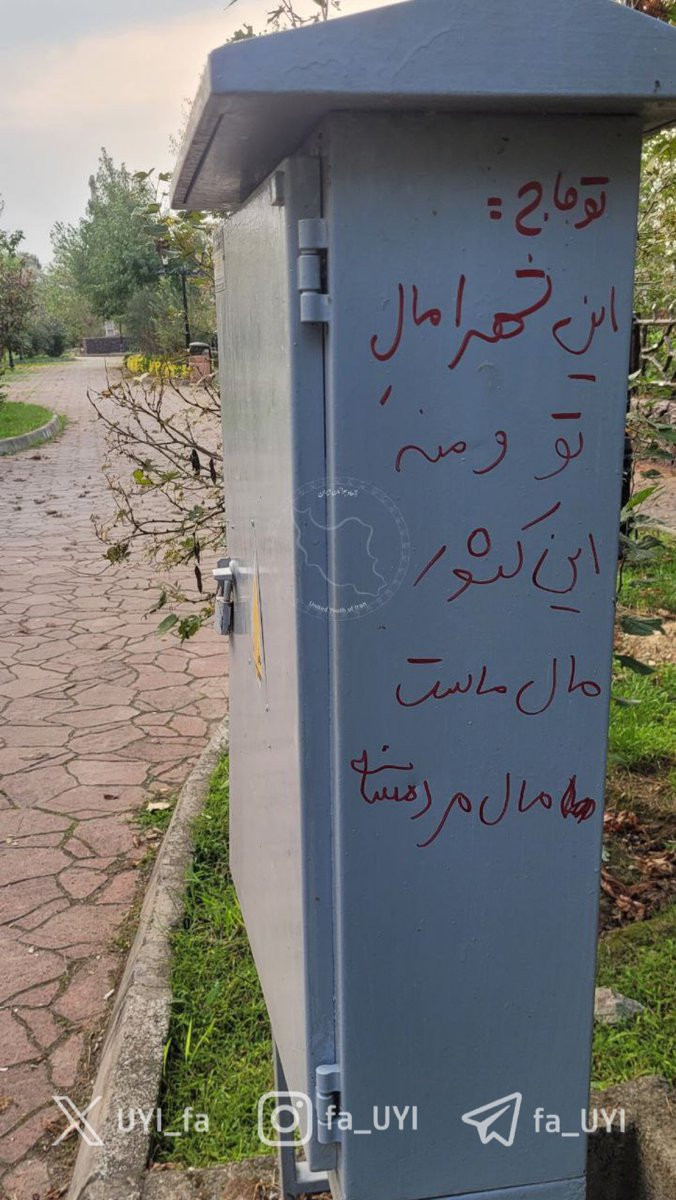 توماج :
این شهر امال
تو و منه
این کشور
مال ماست
مال مردمشه
United Youth of Iran
UYI_fa
fa_UYI
fa_UYI